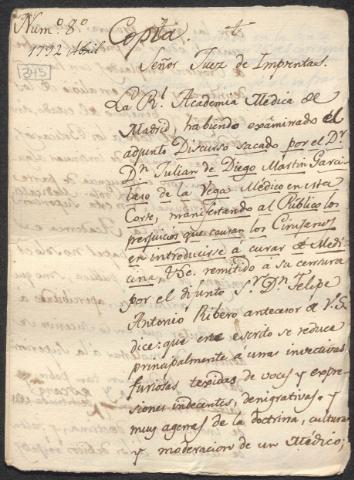 Num.º 8.º
1792 Abril
Copia. t.
315
Señor Juez de Imprentas.
La Rl. Academia Medica de
Madrid, habiendo exâminado el
adjunto Discurso sacado por el Dr.
Dn. Julian de Diego Martin Garci
laso de la Vega Médico en esta
Corte, manifestando al Público los
perjuicios que causan los Cirujanos
en introducirse á curar de Medi
cina, &c. remitido a su censura
por el difunto Sr. Dn. Felipe
Antonio Ribero antecesor de V.S.
dice: que este escrito se reduce
principalmente a unas invectivas
furiosas texidas de voces y expre
siones indecentes, denigrativas y
muy agenas de la doctrina, cultura
y moderacion de un Médico;